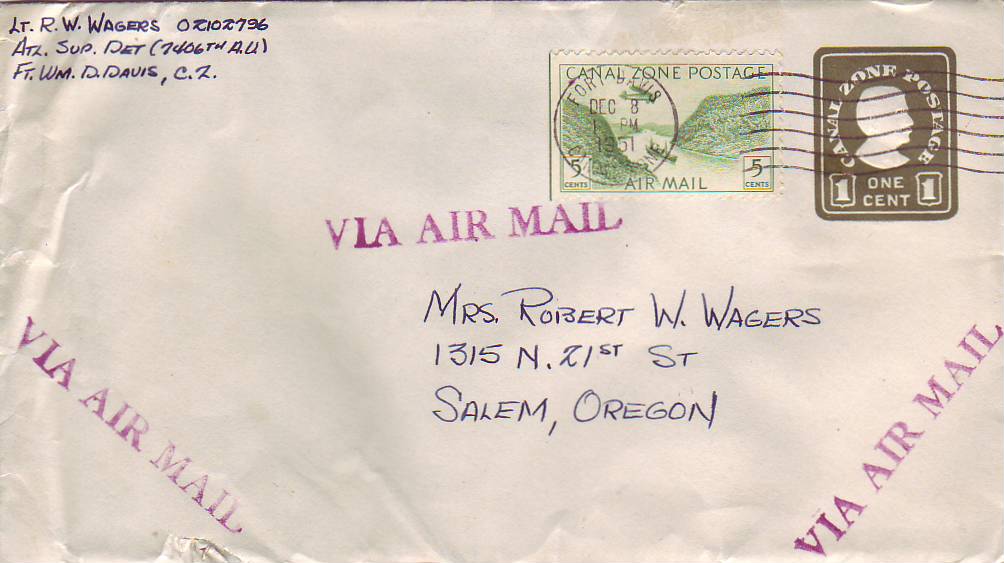 LT. R. W. WAGERS 02102796
ATL. SUP. DET (7406TH A.U)
FT. WM. D. DAVIS, C.Z.
CANAL ZONE POSTAGE
5 CENTS
AIR MAIL
5 CENTS
FORT DAVIS
DEC 8
1 PM
1951
CANAL ZONE POSTAGE
1 ONE CENT 1
VIA AIR MAIL
MRS. ROBERT W. WAGERS
1315 N. 21ST ST
SALEM, OREGON
VIA AIR MAIL
VIA AIR MAIL